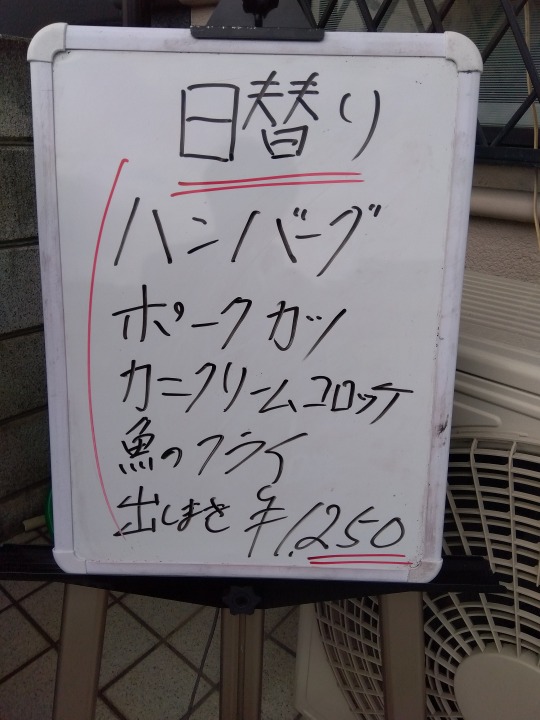 日替り
ハンバーグ
ポークカツ
カニクリームコロッケ
魚のフライ
出しまき ¥1,250